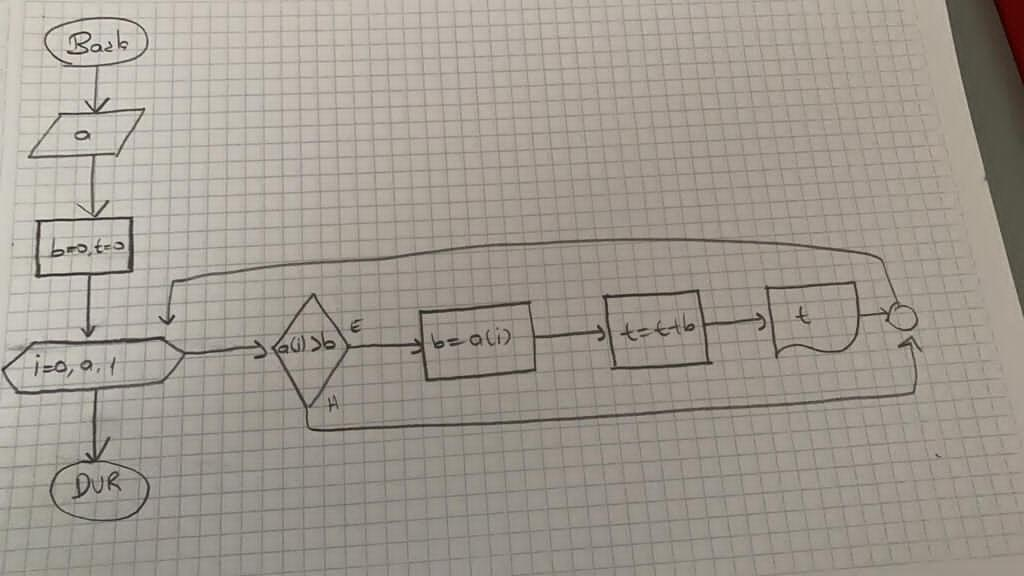 Başla
a
b=0, t=0
i=0, a, 1
a(i)>b
E
H
b=a(i)
t=t+b
t
DUR